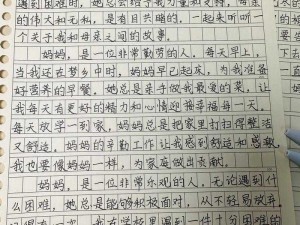 遇到困难时,她总会给予我力量和支持。母亲
的伟大和无私,是有目共睹的。一起来听听一
个关于我和母亲之间的故事。
妈妈,是一位非常勤劳的人。每天早上,
当我还在梦乡中时,妈妈早已起床,为我准备
好营养的早餐。她总是亲手做我最爱的菜,让
我每天有更好的精力和心情迎接幸福每一天。
每天放学一到家,妈妈总是把家里打扫得整洁
又舒适。妈妈的辛勤工作让我感到舒适和感激,
我也要像妈妈一样,为家庭做出贡献。
妈妈,是一位非常乐观的人,无论遇到什
么困难,她总是能够积极面对,从不轻易放弃。
我在学校里遇到一件十分困难的